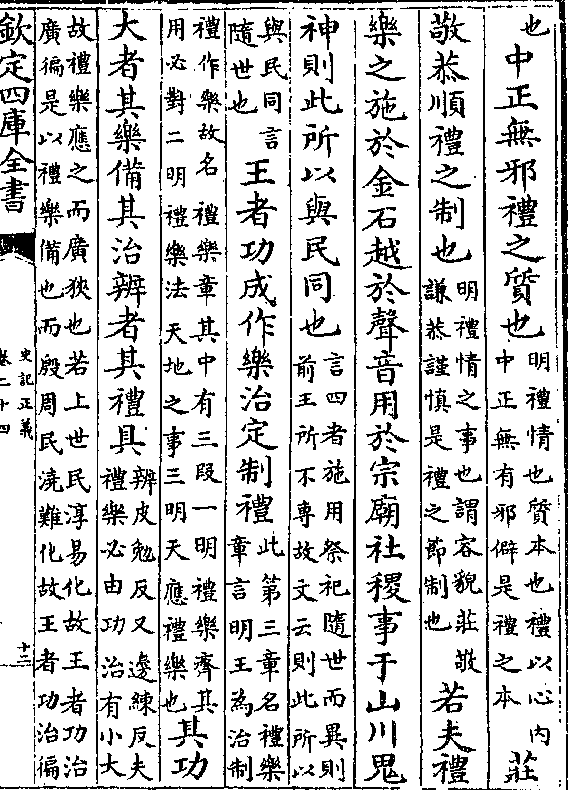 也中正無邪禮之質也明禮情也質本也禮以心内中正無有邪僻是禮之本莊
敬恭順禮之制也明禮情之事也謂容貌莊敬謙恭謹慎是禮之節制也若夫禮
樂之施於金石越於聲音用於宗廟社稷事于山川鬼
神則此所以與民同也言四者施用祭祀隨世而異則前王所不專故文云則此所以
與民同言隨世也王者功成作樂治定制禮此第三章名禮樂章言明王為治制
禮作樂故名禮樂章其中有三段一明禮樂齊其用必對二明禮樂法天地之事三明天應禮樂也其功
大者其樂備其治辨者其禮具辨皮勉反又邊練反夫禮樂必由功治有小大
故禮樂應之而廣狹也若上世民淳易化故王者功治廣徧是以禮樂備也而殷周民澆難化故王者功治徧
欽定四庫全書
史記正義
卷二十四
十二